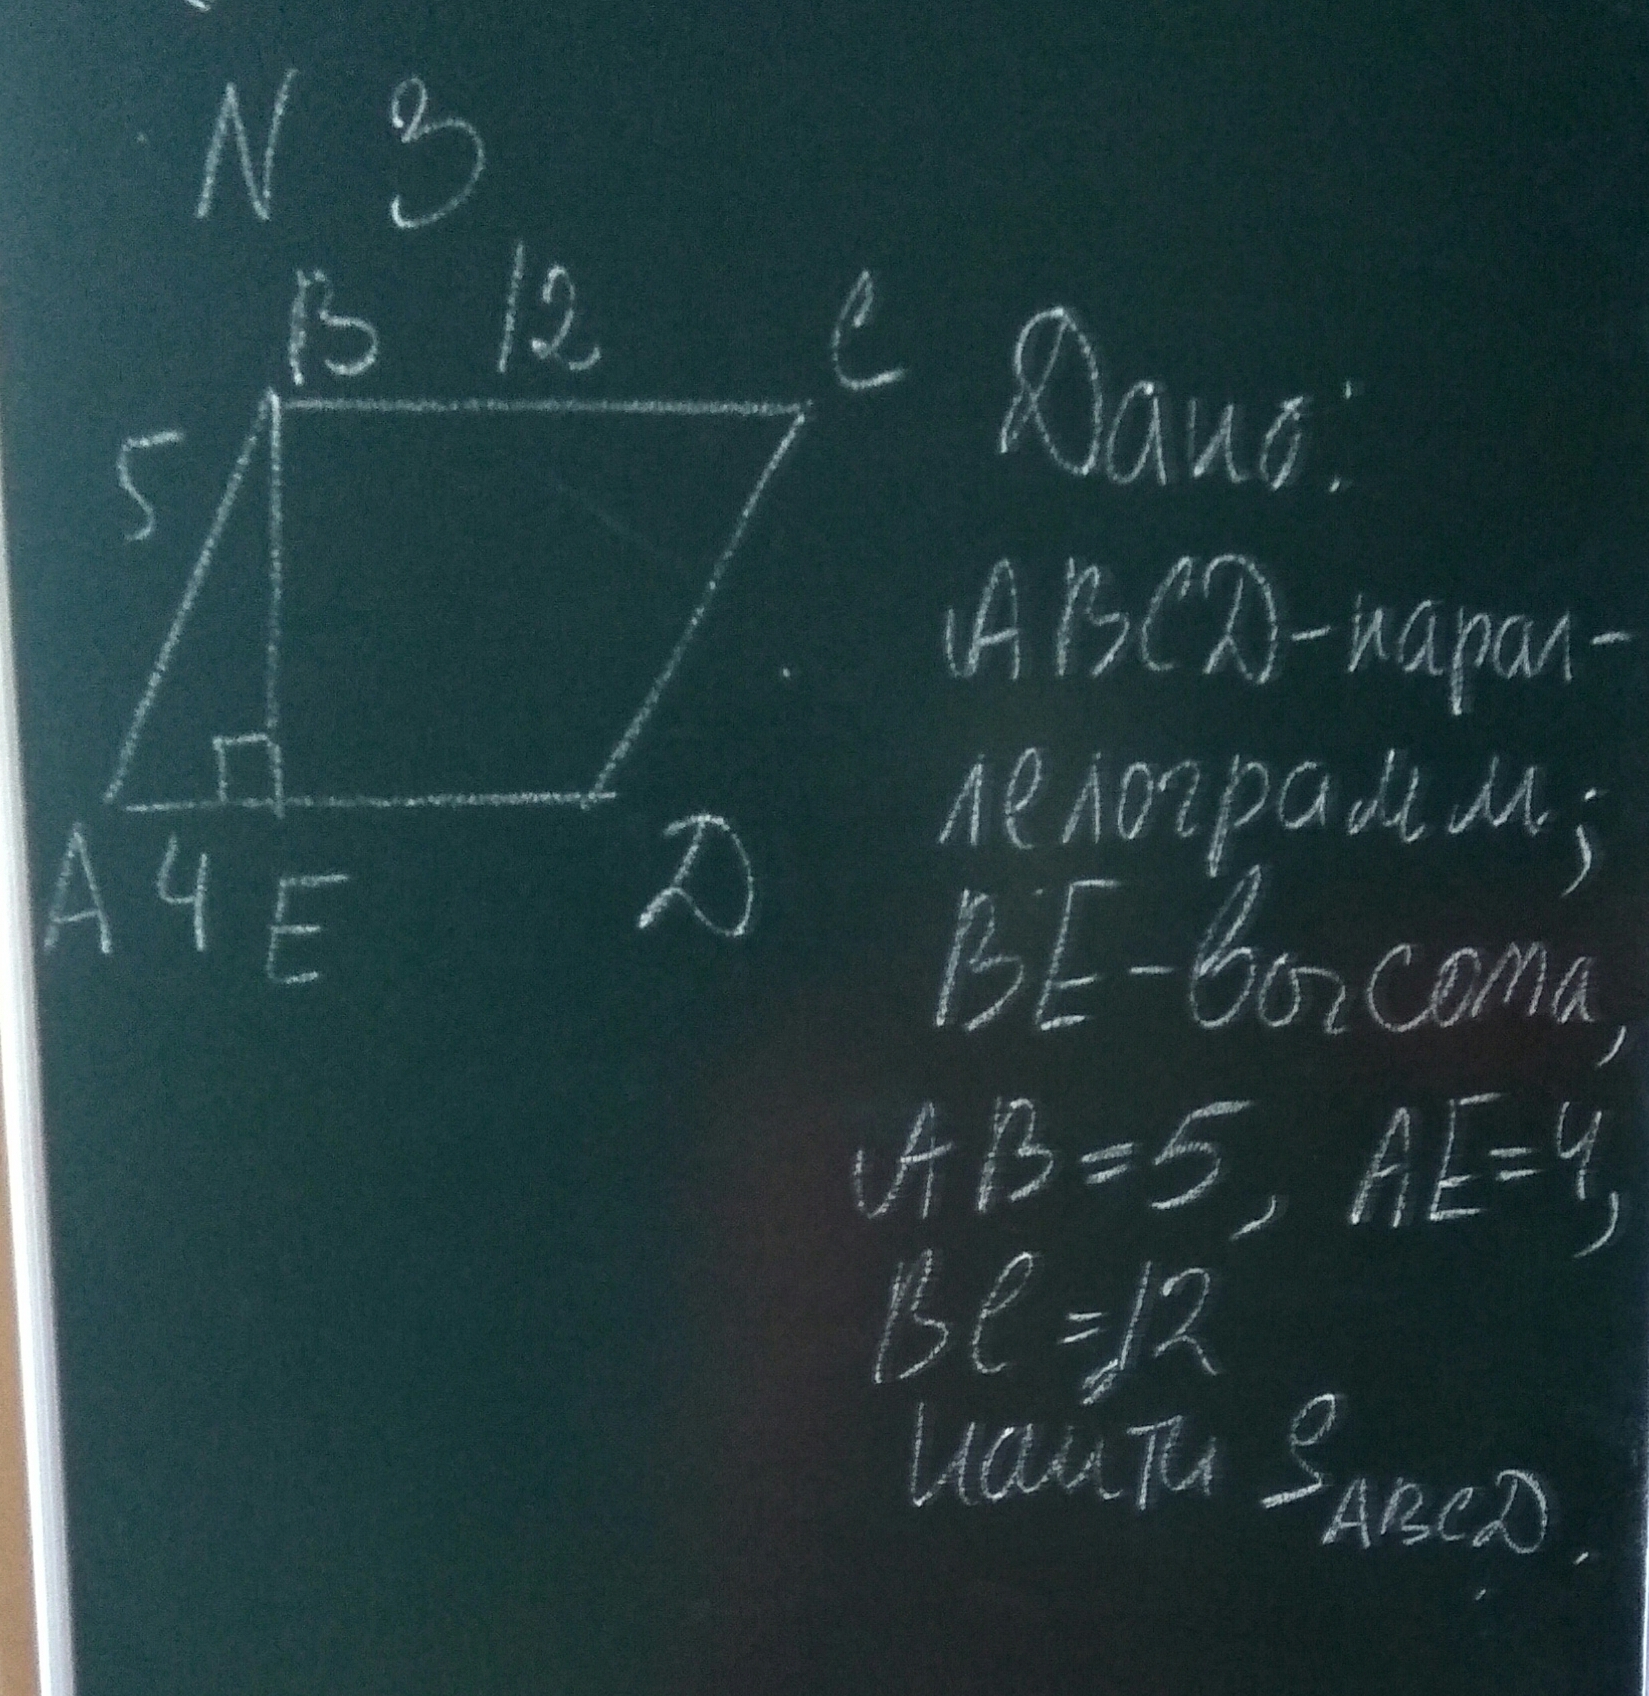 N 3
B 12 C
5
A 4 E D
Дано:
ABCD-парал-
лелограмм;
BE-высота,
AB=5, AE=4,
BC=12
Найти S ABCD.